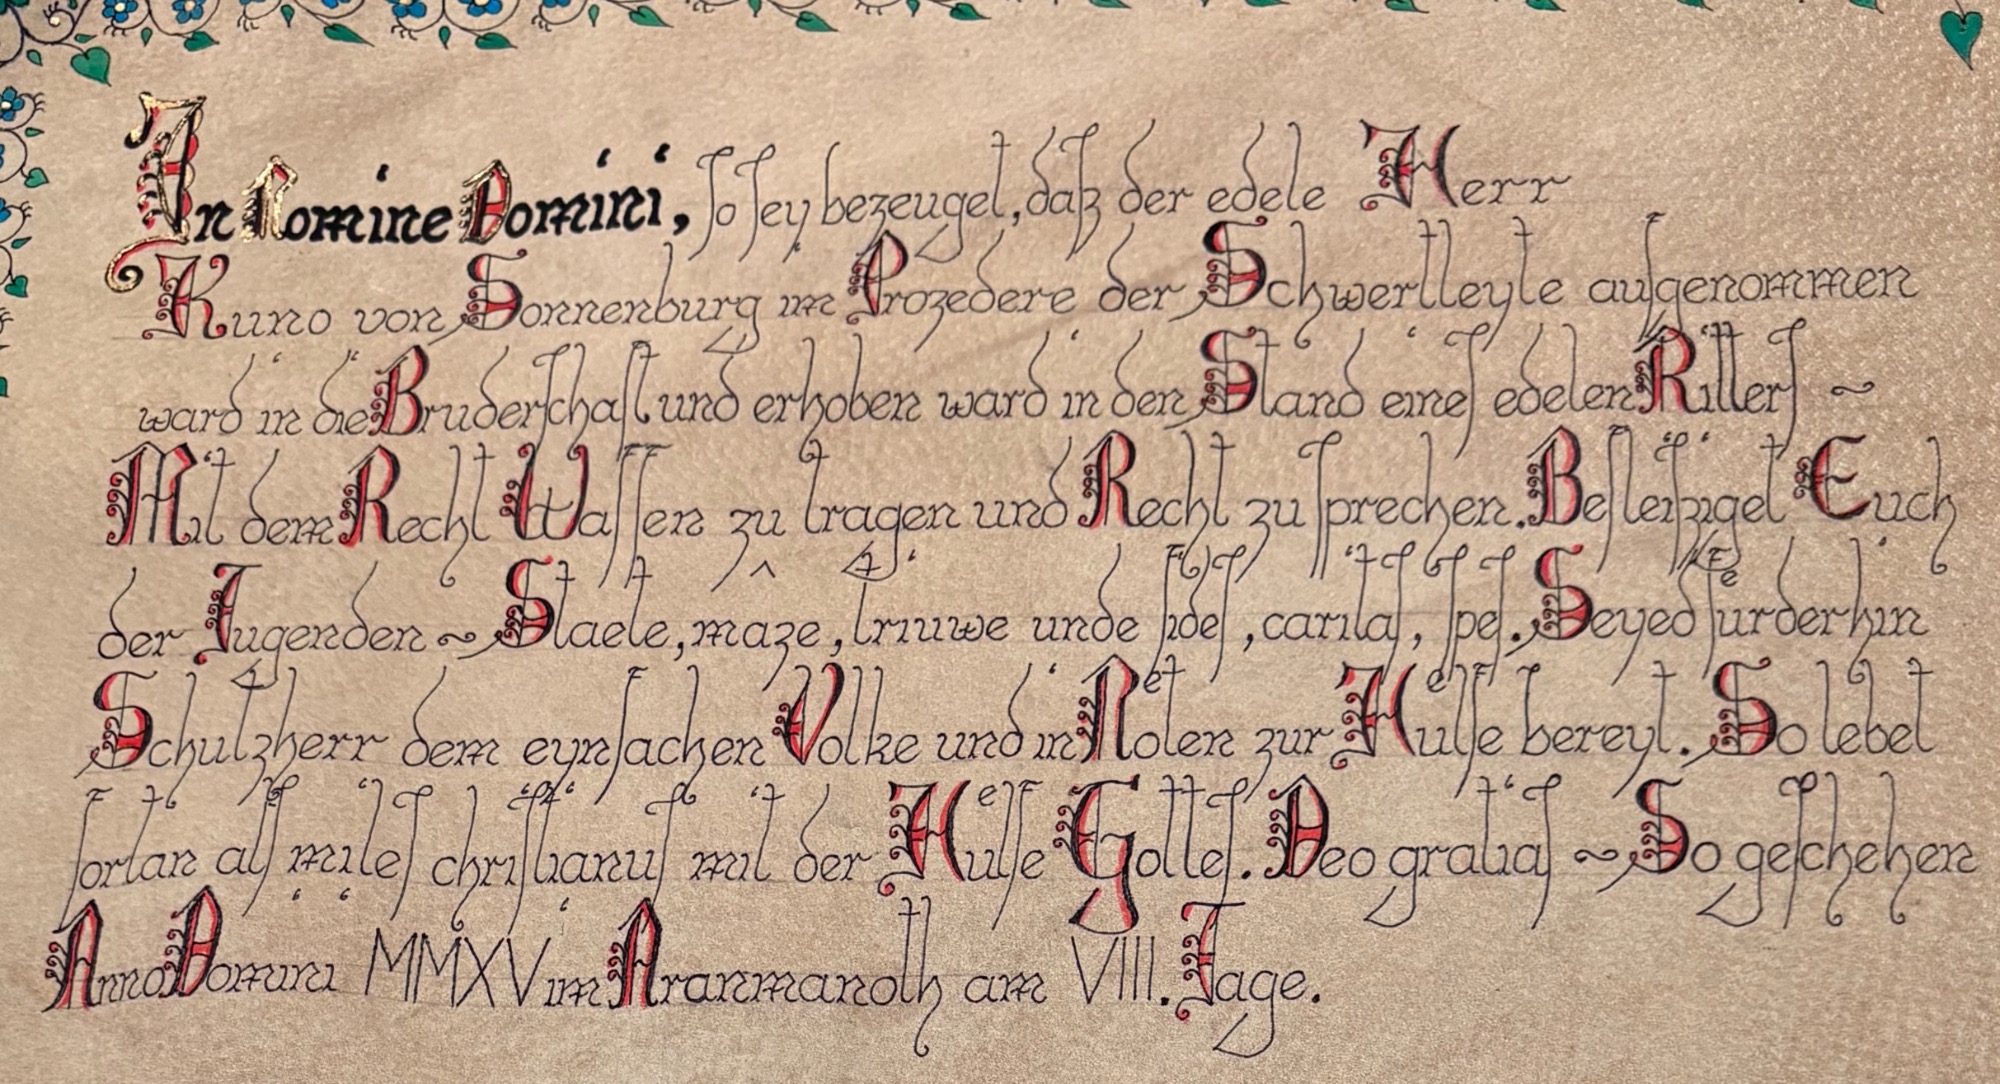 In Nomine Domini, so sey bezeuget, daß der edele Herr
Kuno von Sonnenburg im Prozedere der Schwertleyte aufgenommen
ward in die Bruderschaft und erhoben ward in den Stand eines edelen Ritters ~
Mit dem Recht Waffen zu tragen und Recht zu sprechen. Befleißiget Euch
der Tugenden ~ Staete, mâze, triuwe unde fides, caritas, spes. Seyed fuͤrderhin
Schutzherr dem eynfachen Volke und in Noͤten zur Huͤlfe bereyt. So lebet
fortan als miles christianus mit der Huͤlfe Gottes. Deo gratias ~ So geschehen
Anno Domini MMXV im Aranmanoth am VIII. Tage.